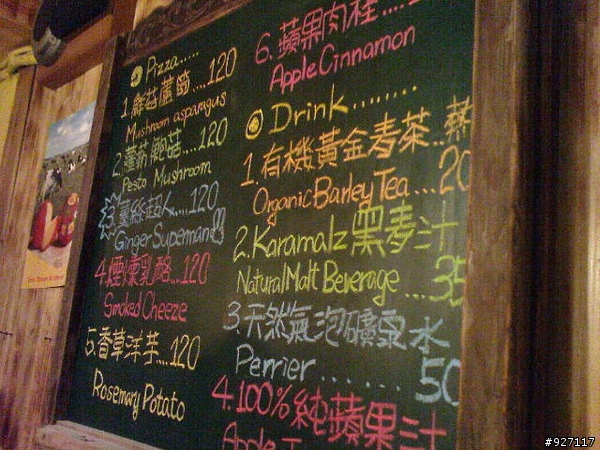 Pizza.....
1.鮮菇蘆筍...120
Mushroom asparagus
2.蘿勒鮑菇....120
Pesto Mushroom
3.薑絲超人...120
Ginger Superman
4.煙燻乳酪...120
Smoked Cheeze
5.香草洋芋...120
Rosemary Potato
6.蘋果肉桂....
Apple Cinnamon
Drink........
1.有機黃金麥茶..熱
Organic Barley Tea...20
2.Karamalz黑麥汁
Natural Malt Beverage ...35
3.天然氣泡礦泉水
Perrier.......50
4.100%純蘋果汁
Apple
#927117